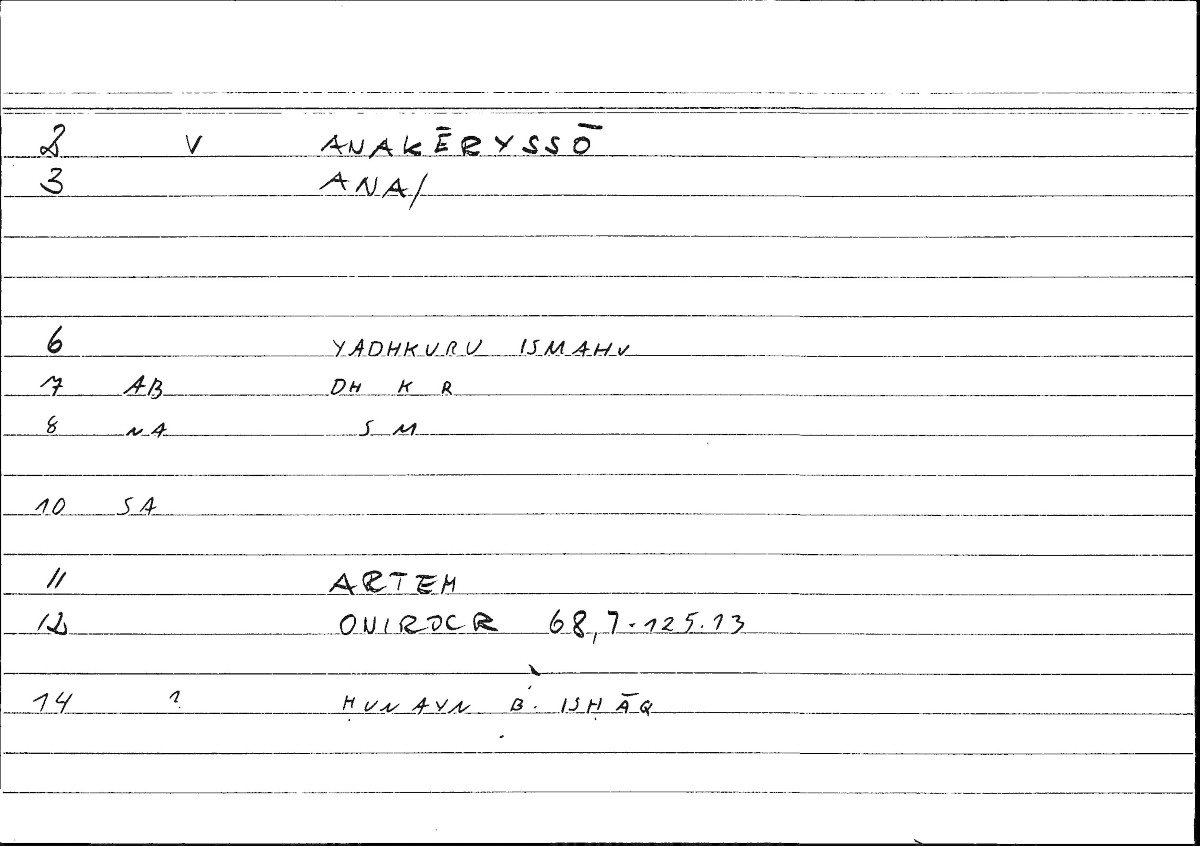 2 V ANAKĒRYSSŌ
3 ANA/
6 YADHKURU ISMAHU
7 AB DH K R
8 NA S M
10 SA
11 ARTEM
12 ONIROCR 68,7.125.13
14 1 ḤUNAYN B. ISḤĀQ